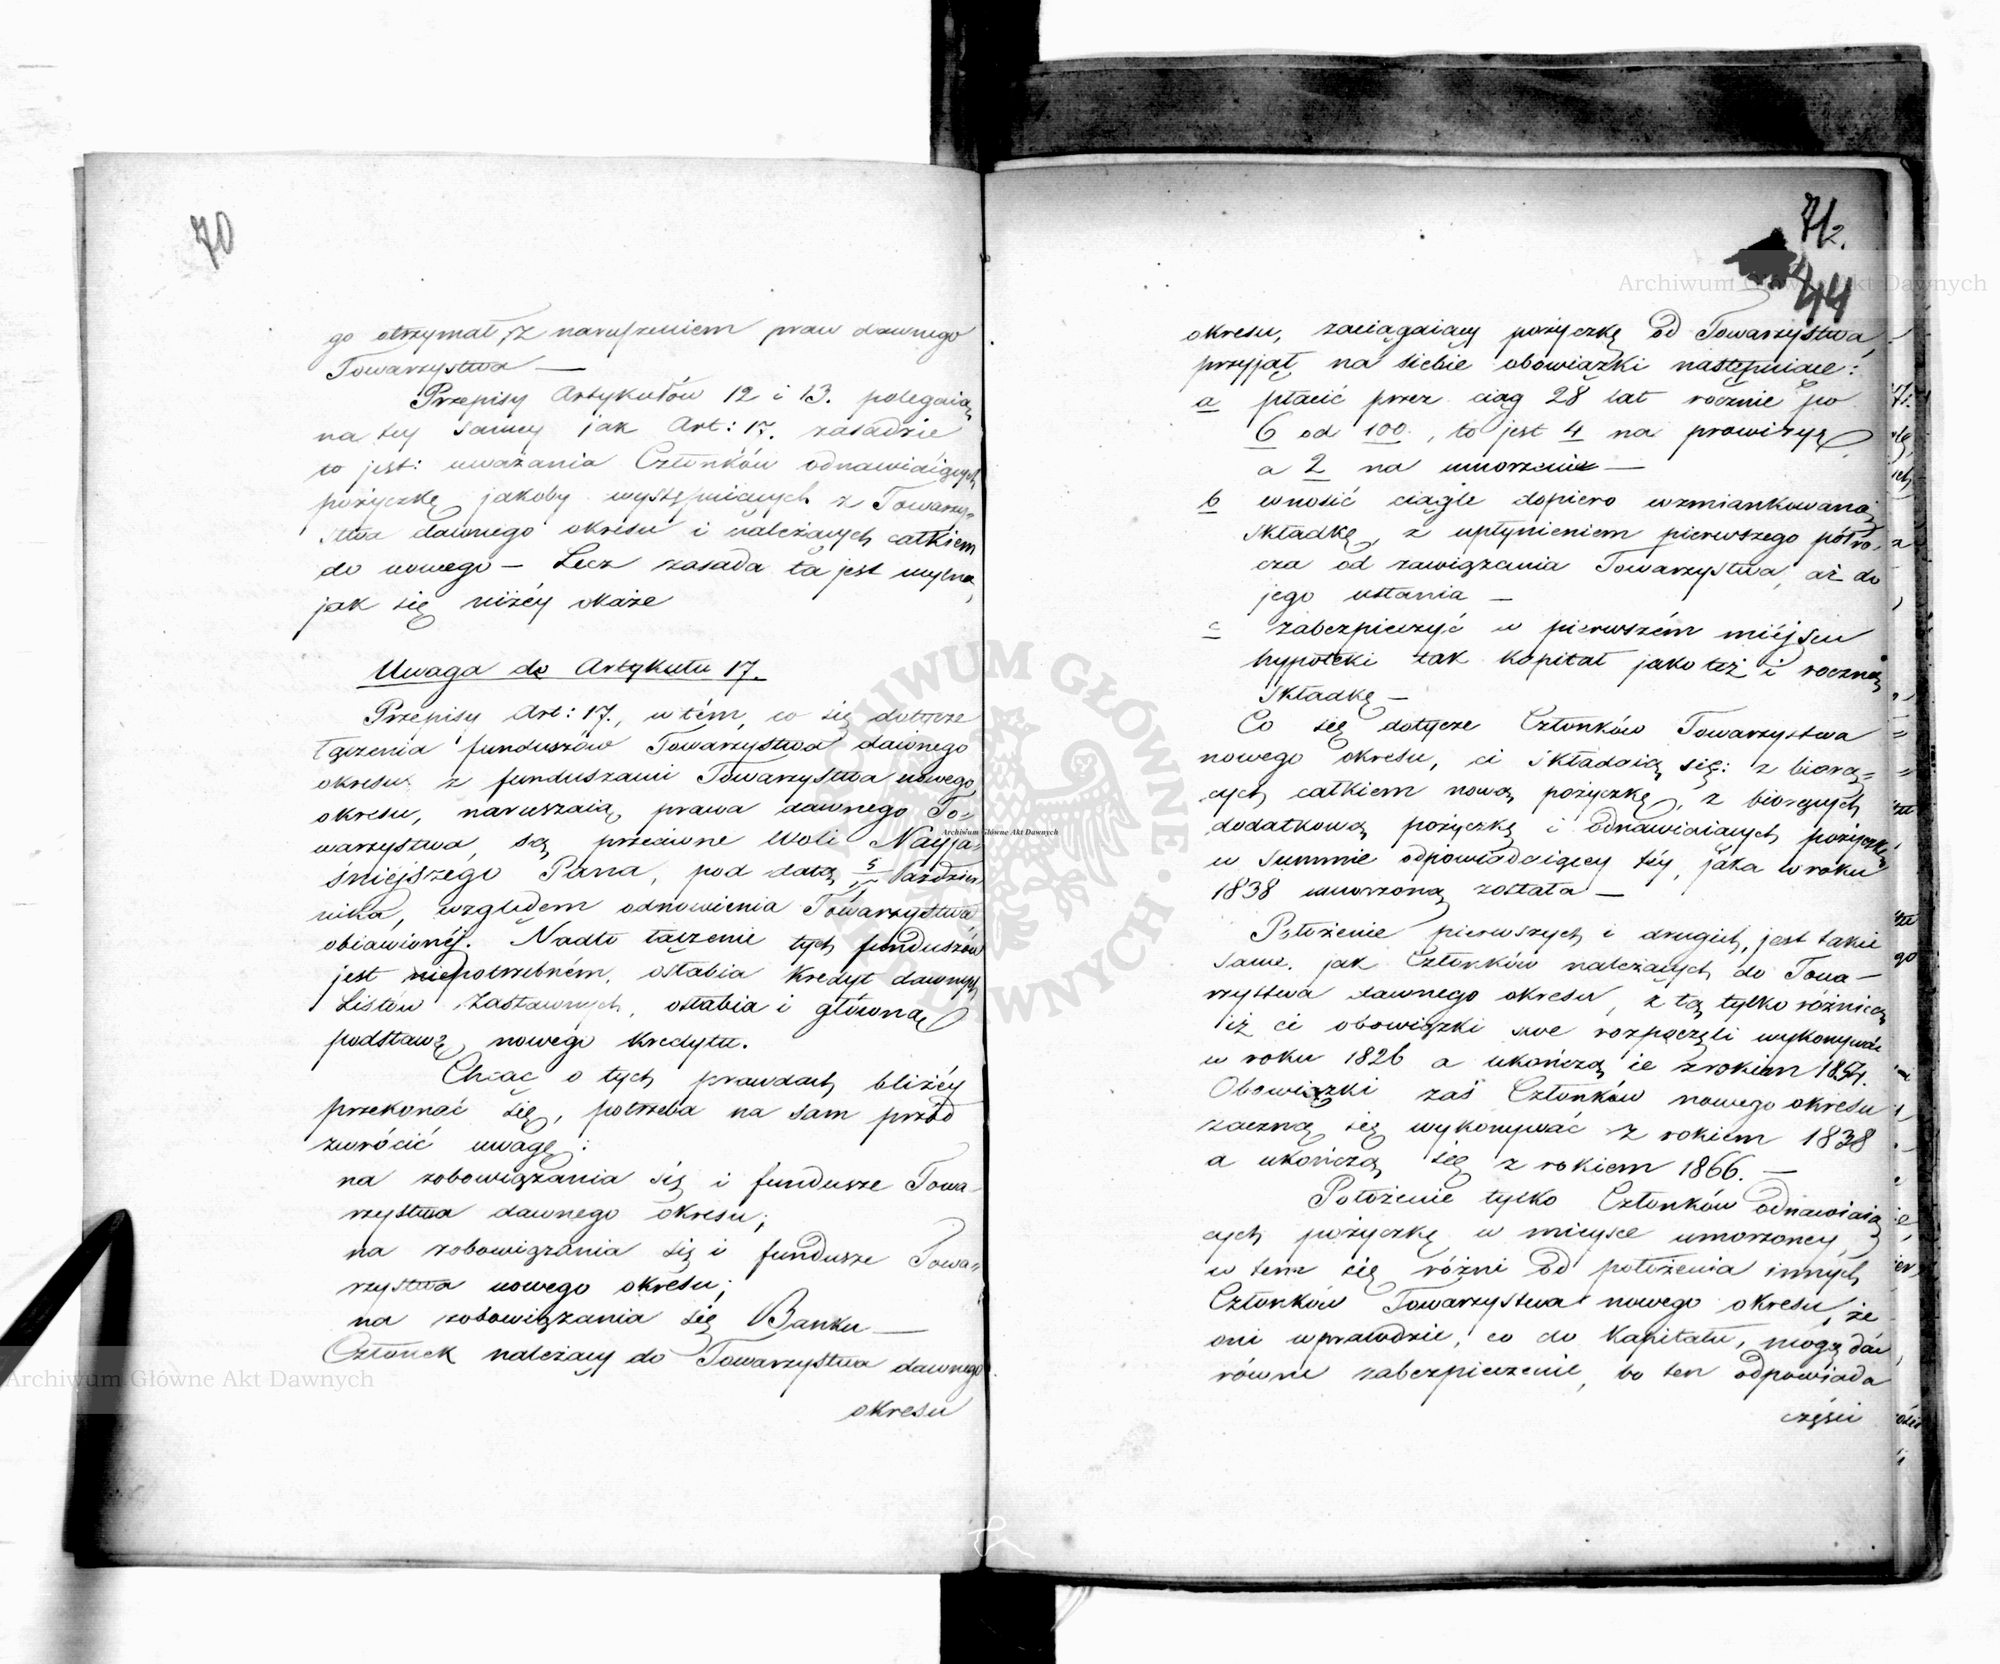 70
go otrzymał, z naruszeniem praw dawnego
Towarzystwa —
Przepisy Artykułów 12 i 13. polegaią
na tey samey jak Art: 17. zasadzie
to jest: uważania Członków odnawiaiących
pożyczkę jakoby występuiących z Towarzy-
stwa dawnego okresu i należących całkiem
do nowego — Lecz zasada ta jest mylna,
jak się niżéy okaże
Uwaga do Artykułu 17.
Przepisy Art: 17., w tém, co się dotycze
łączenia funduszów Towarzystwa dawnego
okresu z funduszami Towarzystwa nowego
okresu, naruszaią prawa dawnego To-
warzystwa, są przeciwne Woli Nayja-
śniejszego Pana, pod datą Paździer
nika, względem odnowienia Towarzystwa
obiawionéj. Nadto łączenie tych funduszów
jest niepotrzebném, osłabia Kredyt dawnych
Listów Zastawnych, osłabia i główną
podstawę nowego kredytu.
Chcąc o tych prawdach bliżéy
przekonać się, potrzeba na sam przód
zwrócić uwagę:
na zobowiązania się i fundusze Towa-
rzystwa dawnego okresu;
na zobowiązania się i fundusze Towa-
rzystwa nowego okresu;
na zobowiązania się Banku —
Członek należący do Towarzystwa dawnego
okresu
71
44
okresu, zaciągaiący pożyczkę od Towarzystwa,
przyjął na siebie obowiązki następuiące:
a płacić przez ciąg 28 lat rocznie po
6 od 100., to jest 4 na prowizyę
a 2 na umorzenie —
b wnosić ciągle dopiero wzmiankowaną
składkę, z upłynieniem pierwszego półro-
cza od zawiązania Towarzystwa, aż do
jego ustania —
c zabezpieczyć w pierwszém miéjscu
hypoteki tak kapitał jako też i roczną
składkę —
Co się dotycze Członków Towarzystwa
nowego okresu, ci składaią się: z biorą-
cych całkiem nową pożyczkę, z biorących
dodatkową pożyczkę i odnawiaiących pożyczkę
w summie odpowiadaiącey téy, jaka w roku
1838 umorzoną została —
Położenie pierwszych i drugich, jest takie
same, jak Członków należących do Towa-
rzystwa dawnego okresu, z tą tylko różnicą
iż ci obowiązki swe rozpoczęli wykonywać
w roku 1826 a ukończą ie z rokiem 1854.
Obowiązki zaś Członków nowego okresu
zaczną się wykonywać z rokiem 1838
a ukończą się z rokiem 1866. —
Położenie tylko Członków odnawiaią
cych pożyczkę w mieysce umorzoney,
w tem się różni od położenia innych
Członków Towarzystwa nowego okresu, że
oni wprawdzie, co do Kapitału, mogą dać
równe zabezpieczenie, bo ten odpowiada
części
Archiwum Główne Akt Dawnych
Archiwum Główne Akt Dawnych
Archiwum Główne Akt Dawnych
ARCHIWUM GŁÓWNE AKT DAWNYCH